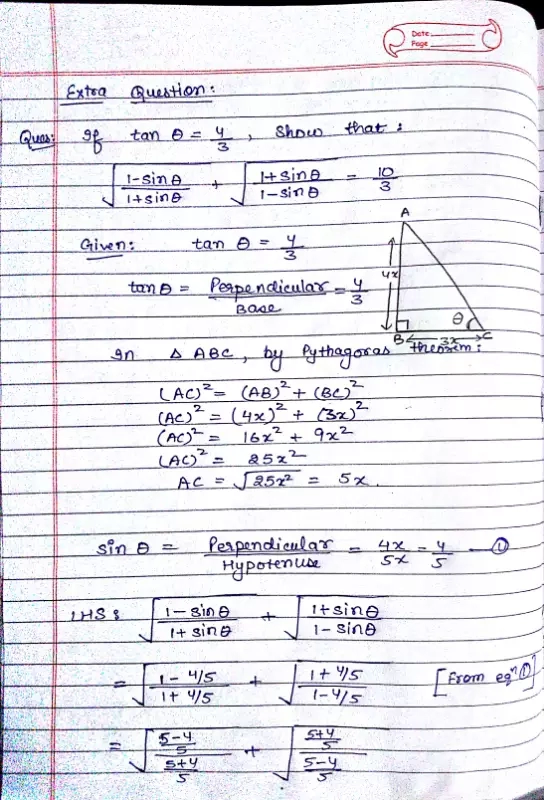 Date
Page
Extra Question:
Ques: If tan θ = 4/3, Show that :
√((1-sinθ)/(1+sinθ)) + √((1+sinθ)/(1-sinθ)) = 10/3
A
Given: tan θ = 4/3
4x
tanθ = Perpendicular/Base = 4/3
θ
B 3x C
In Δ ABC, by Pythagoras theorem :
(AC)² = (AB)² + (BC)²
(AC)² = (4x)² + (3x)²
(AC)² = 16x² + 9x²
(AC)² = 25x²
AC = √25x² = 5x.
sin θ = Perpendicular/Hypotenuse = 4x/5x = 4/5 — ①
LHS : √((1-sinθ)/(1+sinθ)) + √((1+sinθ)/(1-sinθ))
= √((1-4/5)/(1+4/5)) + √((1+4/5)/(1-4/5)) [From eqⁿ ①]
= √(((5-4)/5)/((5+4)/5)) + √(((5+4)/5)/((5-4)/5))